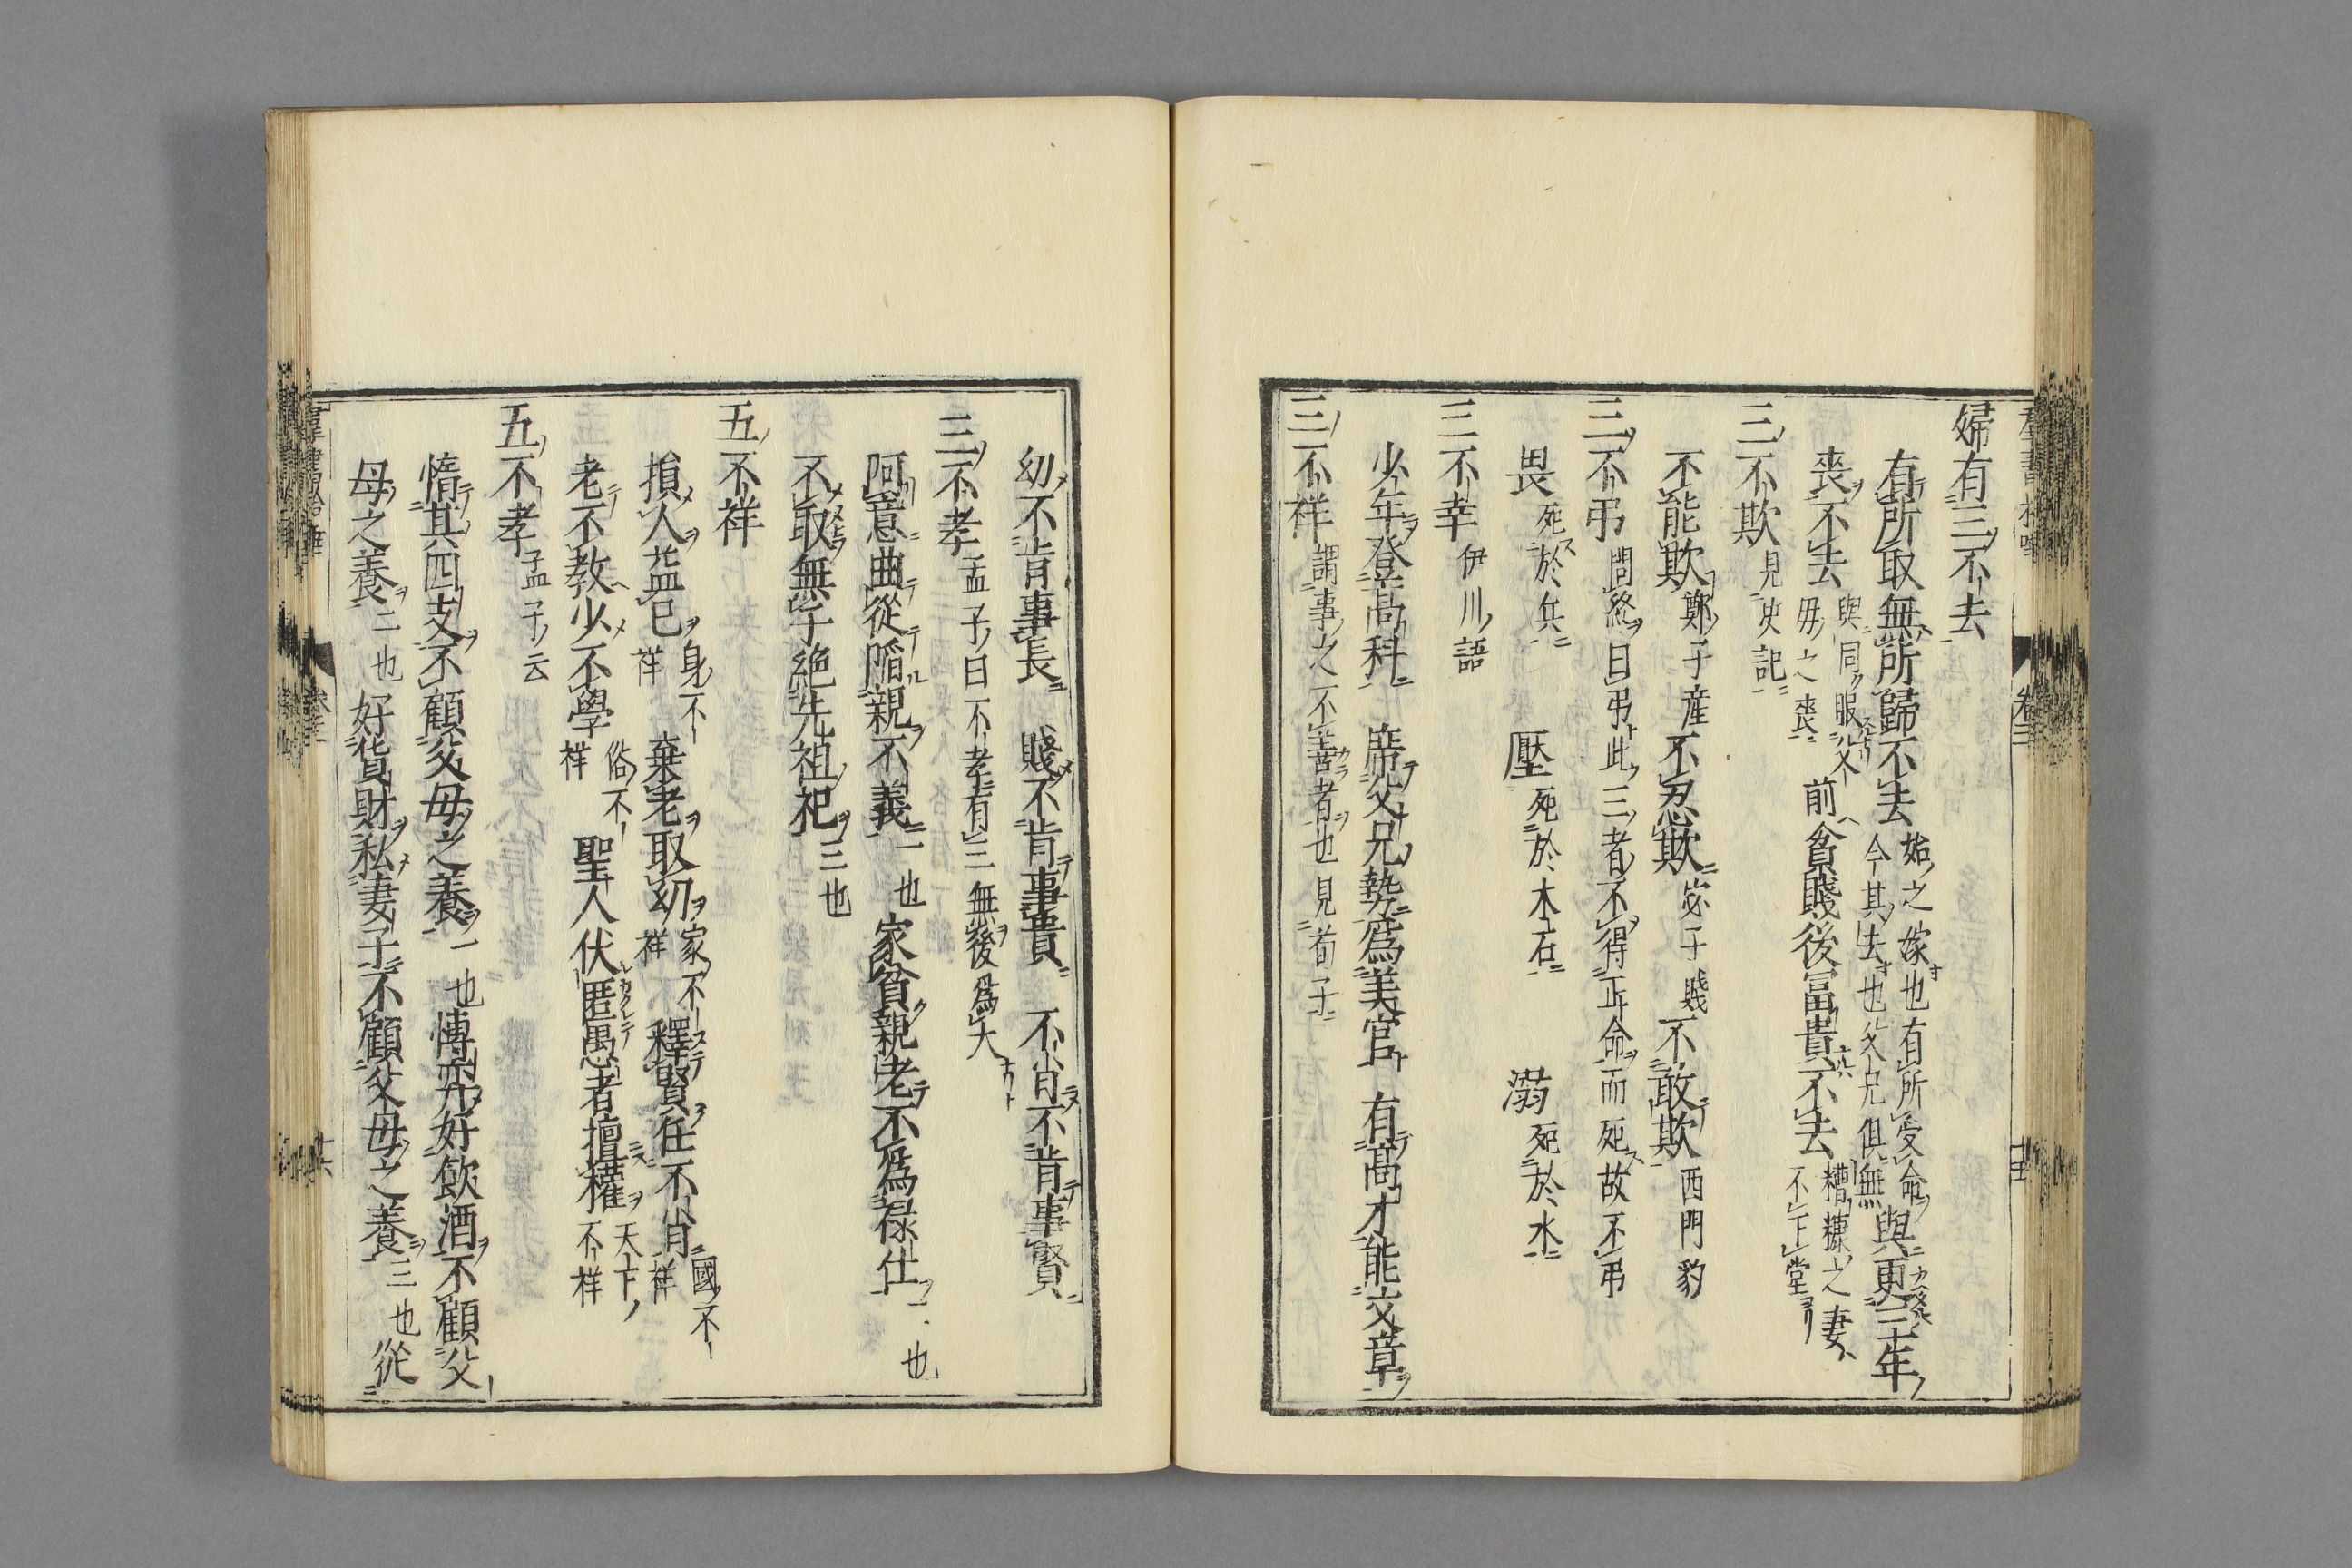 婦有三不去
有所取無所歸不去 始之嫁也有所受命今其去也父兄俱無 與更三年
喪不去 與同服父母之喪 前貧賤後富貴不去 糟糠之妻不下堂
三不欺 見史記
不能欺 鄭子産 不忍欺 宓子賤 不敢欺 西門豹
三不弔 問終曰弔此三者不得正命而死故不弔
畏 死於兵 壓 死於木石 溺 死於水
三不幸 伊川語
少年登高科 席父兄勢爲美官 有高才能文章
三不祥 謂事之不善者也見荀子
幼不肯事長 賤不肯事貴 不肖不肯事賢
三不孝 孟子曰不孝有三無後爲大
阿意曲從陷親不義 一也 家貧親老不爲禄仕 二也
不取無子絶先祖祀 三也
五不祥
損人益己 身不祥 棄老取幼 家不祥 釋賢任不肖 國不祥
老不教少不學 俗不祥 聖人伏匿愚者擅權 天下不祥
五不孝 孟子云
惰其四支不顧父母之養 一也 博弈好飲酒不顧父
母之養 二也 好貨財私妻子不顧父母之養 三也 從
卷三
十六